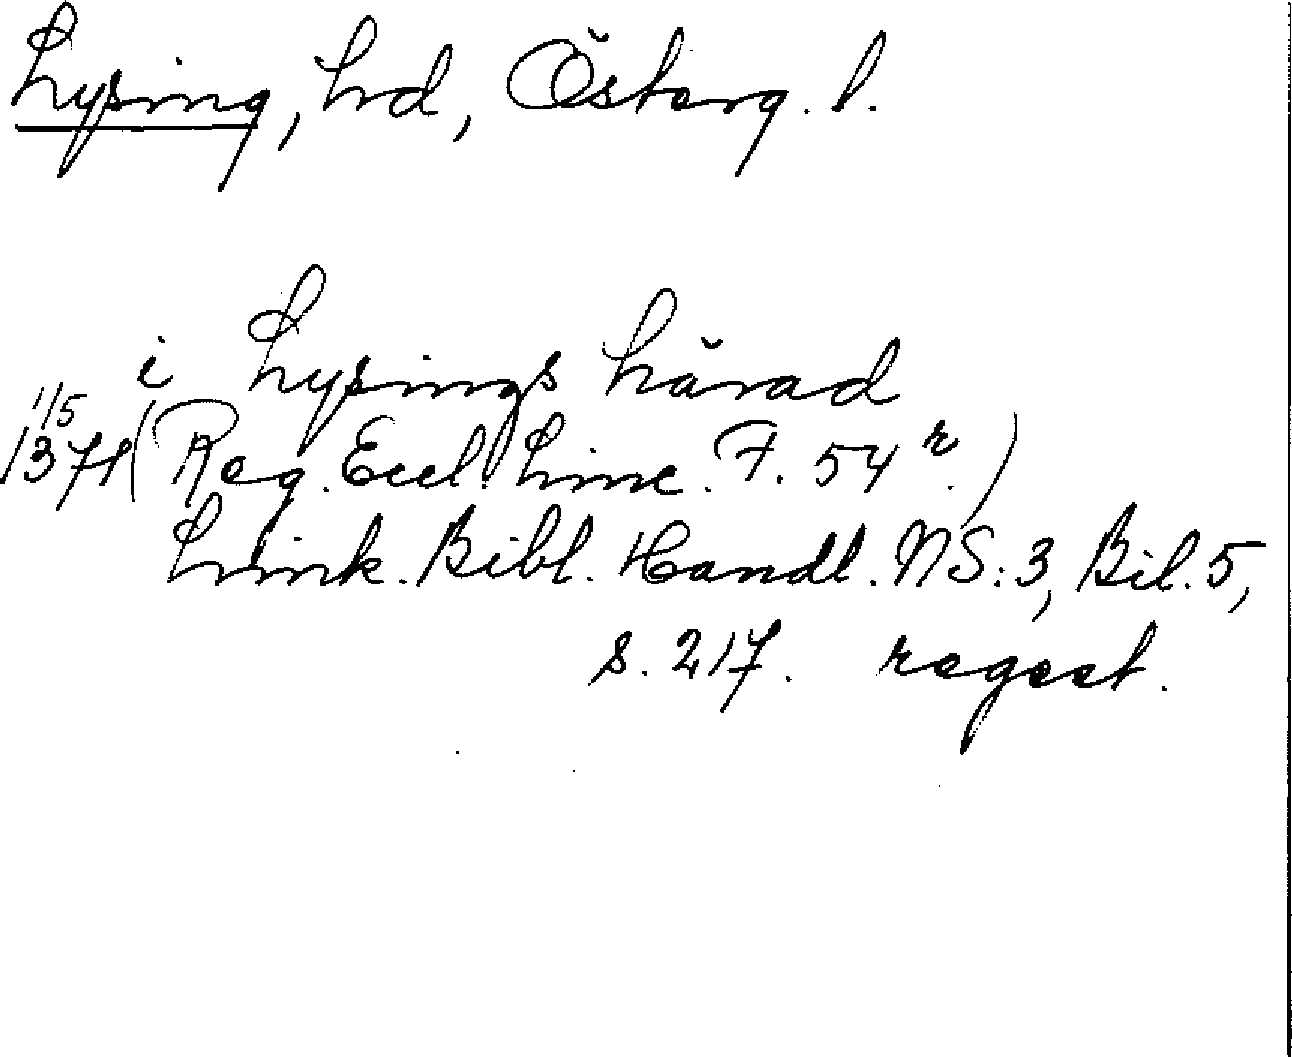 Lysing, hd, Österg. l.
i Lysings härad
1/5
1371 (Reg. Eccl. Linc. F. 54 r.)
Link. Bibl. Handl. NS: 3, Bil. 5,
s. 217. regest.